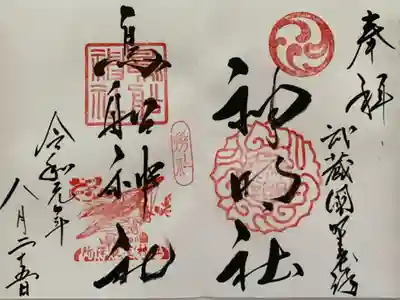 奉拝
武蔵関
神明社
鳥船神社
令和元年
八月二十五日